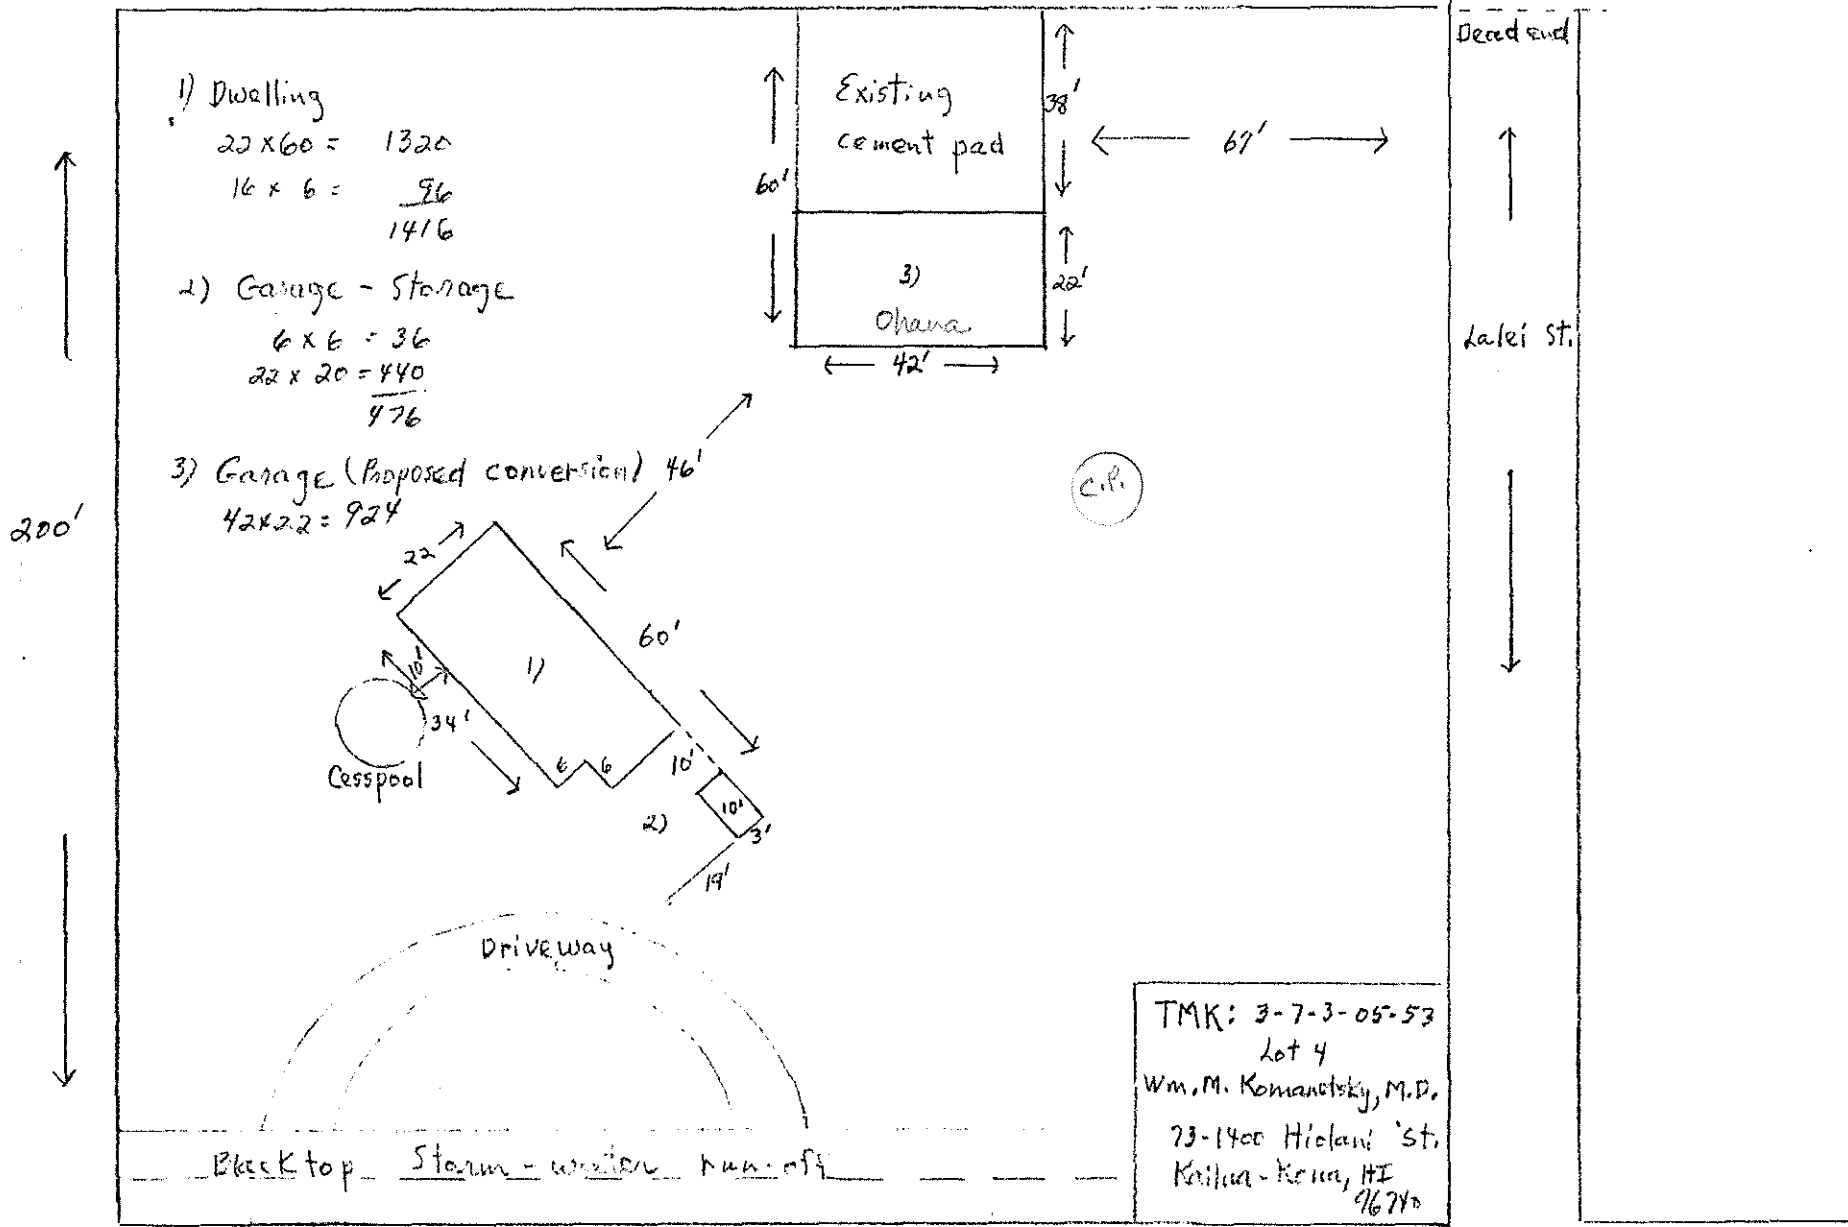 1) Dwelling
22 x 60 = 1320
16 x 6 = 96
1416
2) Garage - Storage
6 x 6 = 36
22 x 20 = 440
476
3) Garage (Proposed conversion)
42 x 22 = 924
200'
Existing
cement pad
60'
38'
67'
3)
Ohana
22'
42'
46'
C.P.
Dead end
Lalei St.
22
60'
1)
10'
34'
Cesspool
6 6
10'
2)
10'
3'
19'
Driveway
Blacktop Storm-water run-off
TMK: 3-7-3-05-53
Lot 4
Wm. M. Komanetsky, M.D.
73-1400 Hiolani St.
Kailua-Kona, HI
96740